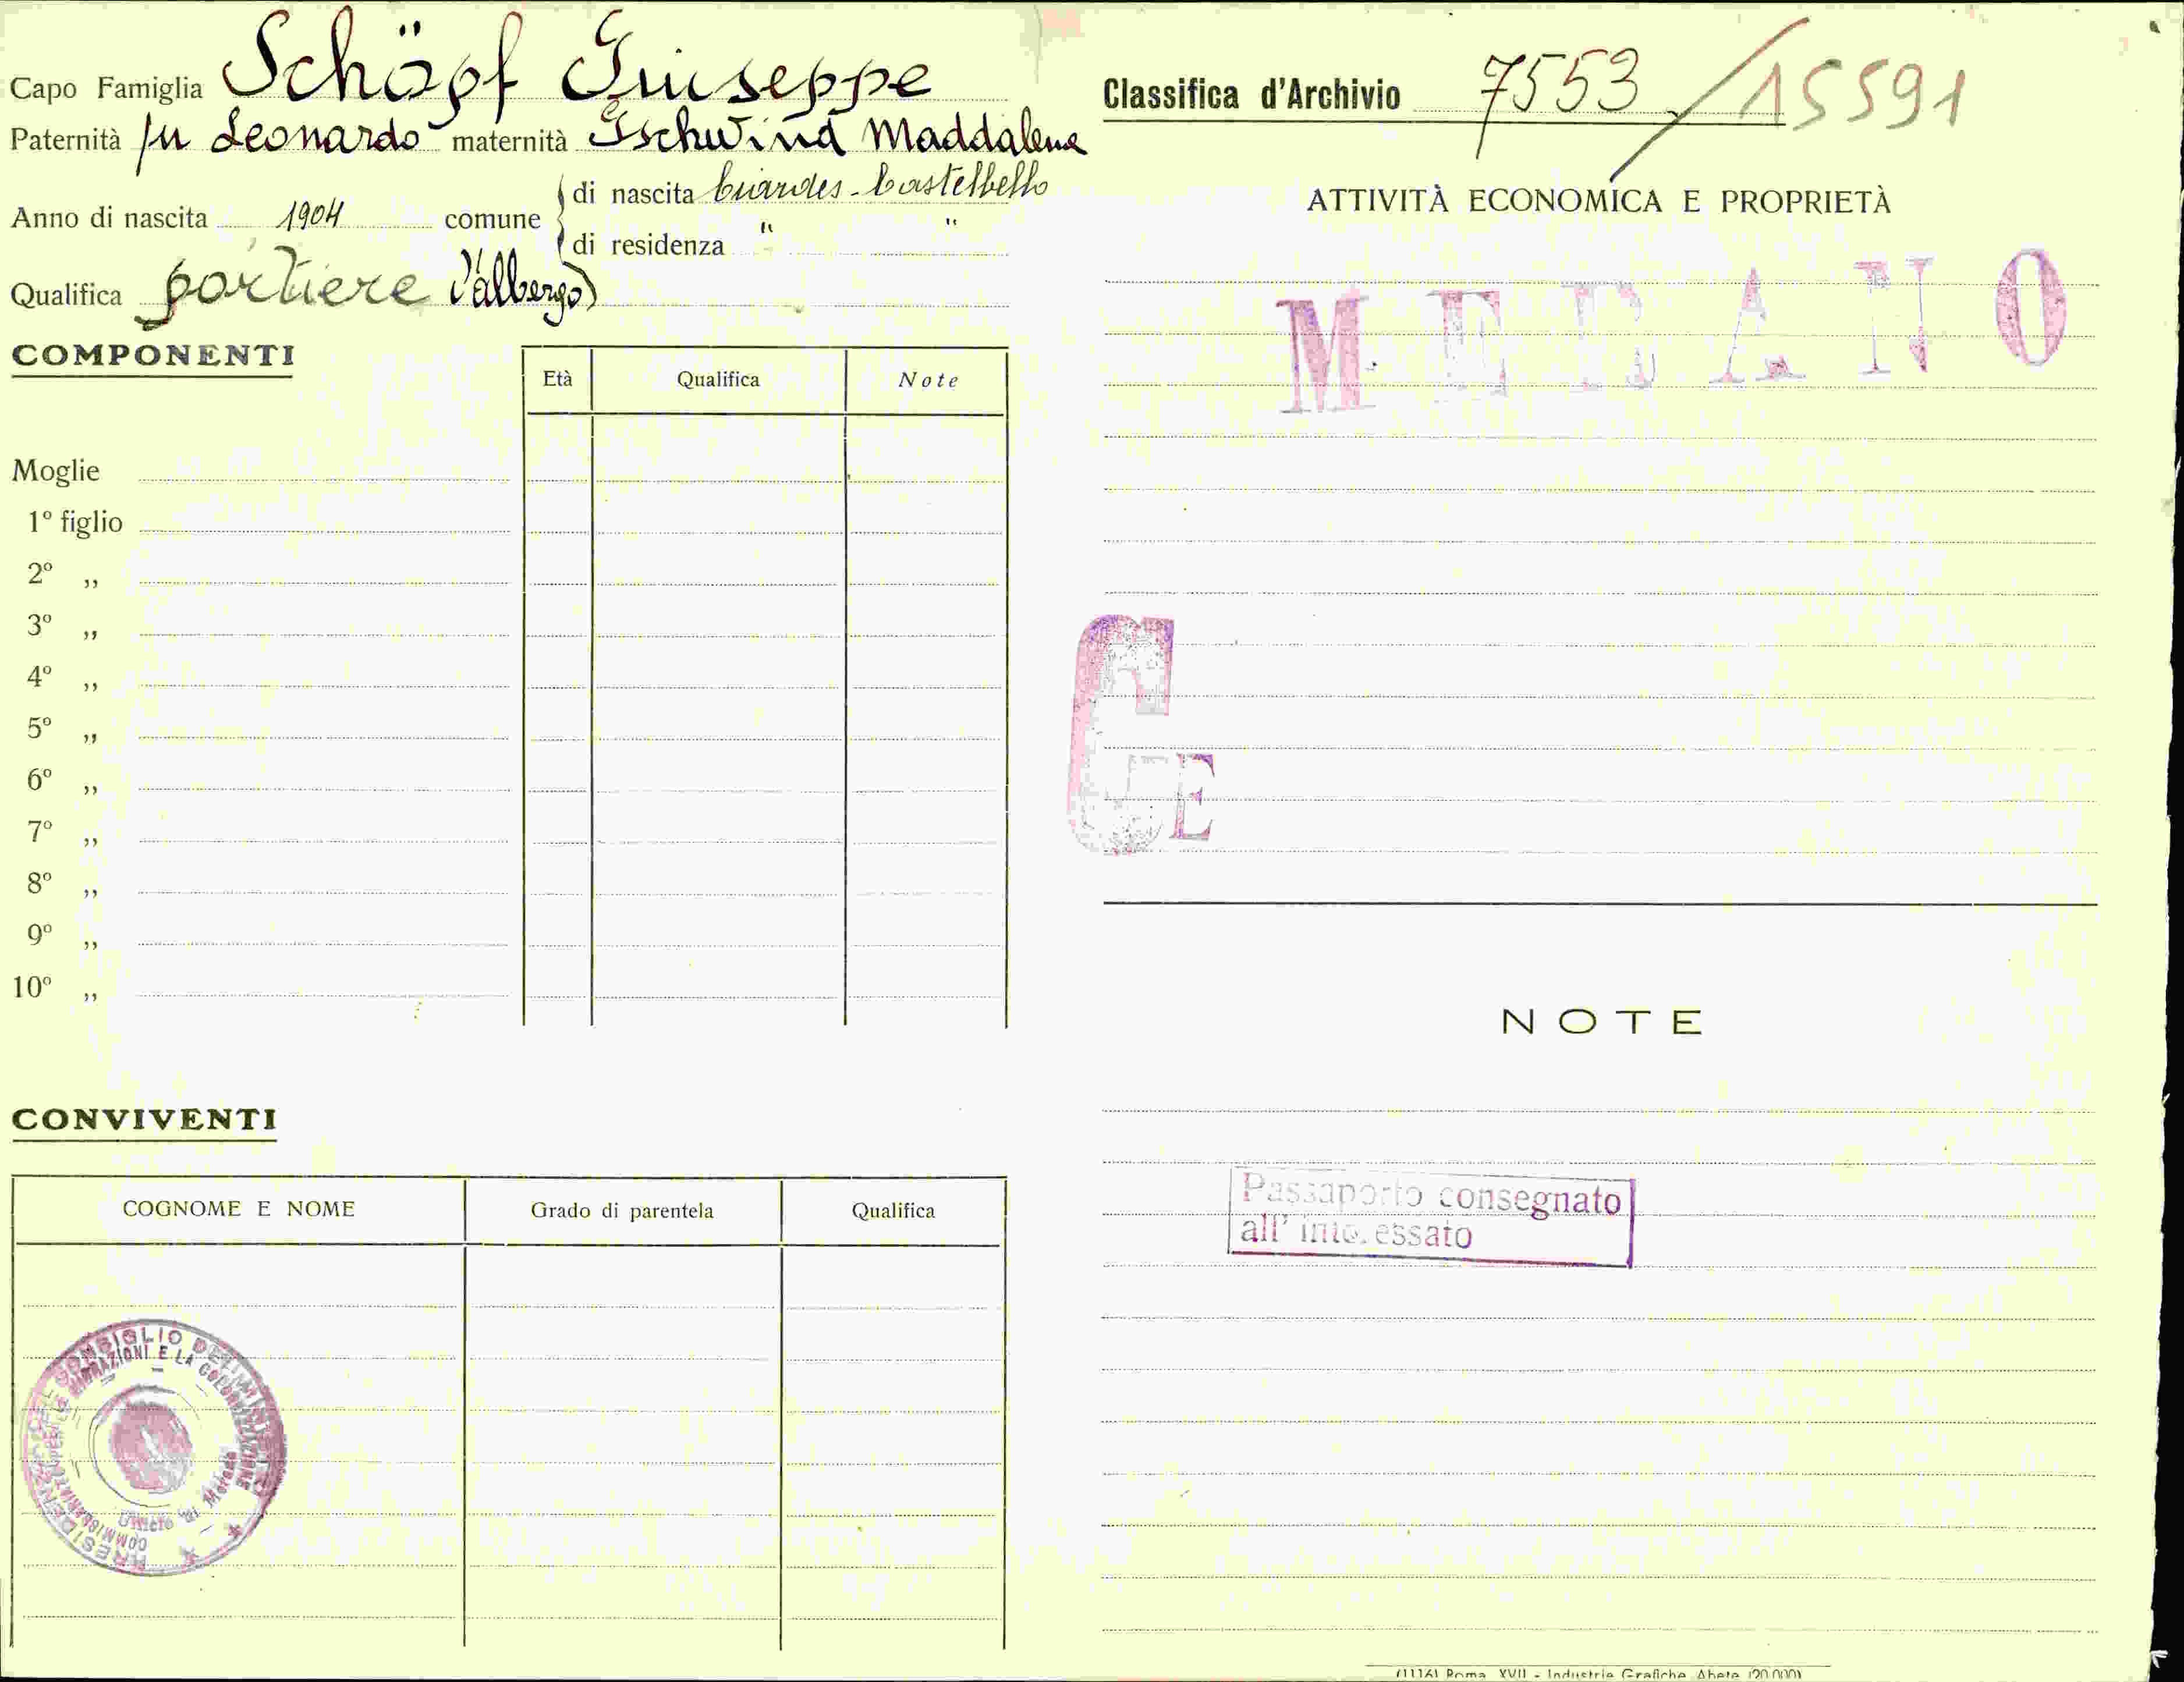 Capo Famiglia Schöpf Giuseppe
Paternità fu Leonardo maternità Gschwind Maddalena
Anno di nascita 1904 comune di nascita Ciardes - Castelbello
di residenza " "
Qualifica portiere d'albergo)
COMPONENTI
Età Qualifica Note
Moglie
1º figlio
2º „
3º „
4º „
5º „
6º „
7º „
8º „
9º „
10º „
CONVIVENTI
COGNOME E NOME Grado di parentela Qualifica
PRESIDENZA DEL CONSIGLIO DEI MINISTRI
COMMISSARIATO PER LE MIGRAZIONI E LA COLONIZZAZIONE
Ufficio di Merano
Classifica d'Archivio 7553/15591
ATTIVITÀ ECONOMICA E PROPRIETÀ
MERANO
G
E
NOTE
Passaporto consegnato
all'interessato
(1116) Roma, XVII - Industrie Grafiche Abete (20.000)